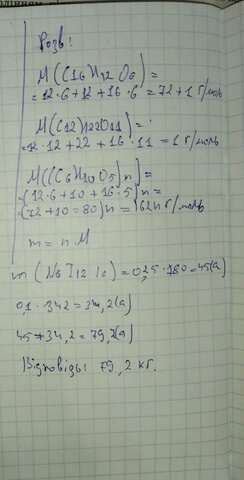 Розв:
M(C16H12O6)=
=12·6+12+16·6=72+1 г/моль
M(C12H22O11)=
=12·12+22+16·11=1 г/моль
M((C6H10O5)n)=
=(12·6+10+16·5)n=
=(72+10=80)n=162n г/моль
m=nM
=0,25·180=45(г)
0,1·342=34,2(г)
45+34,2=79,2(г)
Відповідь: 79,2 кг.